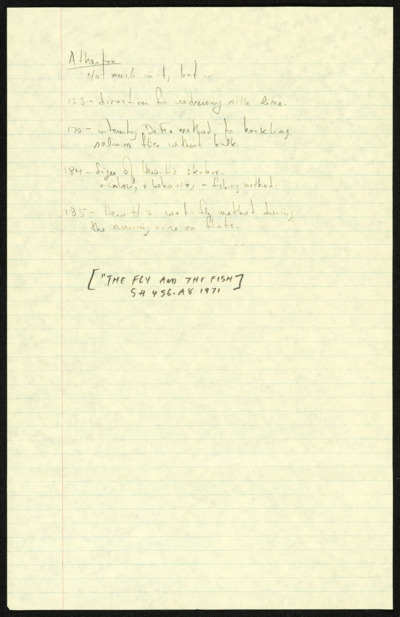 Atherton
Not much in it, but in
123 - direction for redressing silk lines.
170 - DeFeo method, for hackling
salmon flies without bulk.
184 - Sizes of Hewitt's skaters.
+ colors, + behavior - fishing method.
185 - Hewitt's wet-fly method during
the evening rise on flats.
["THE FLY AND THE FISH"]
SH 456.A8 1971